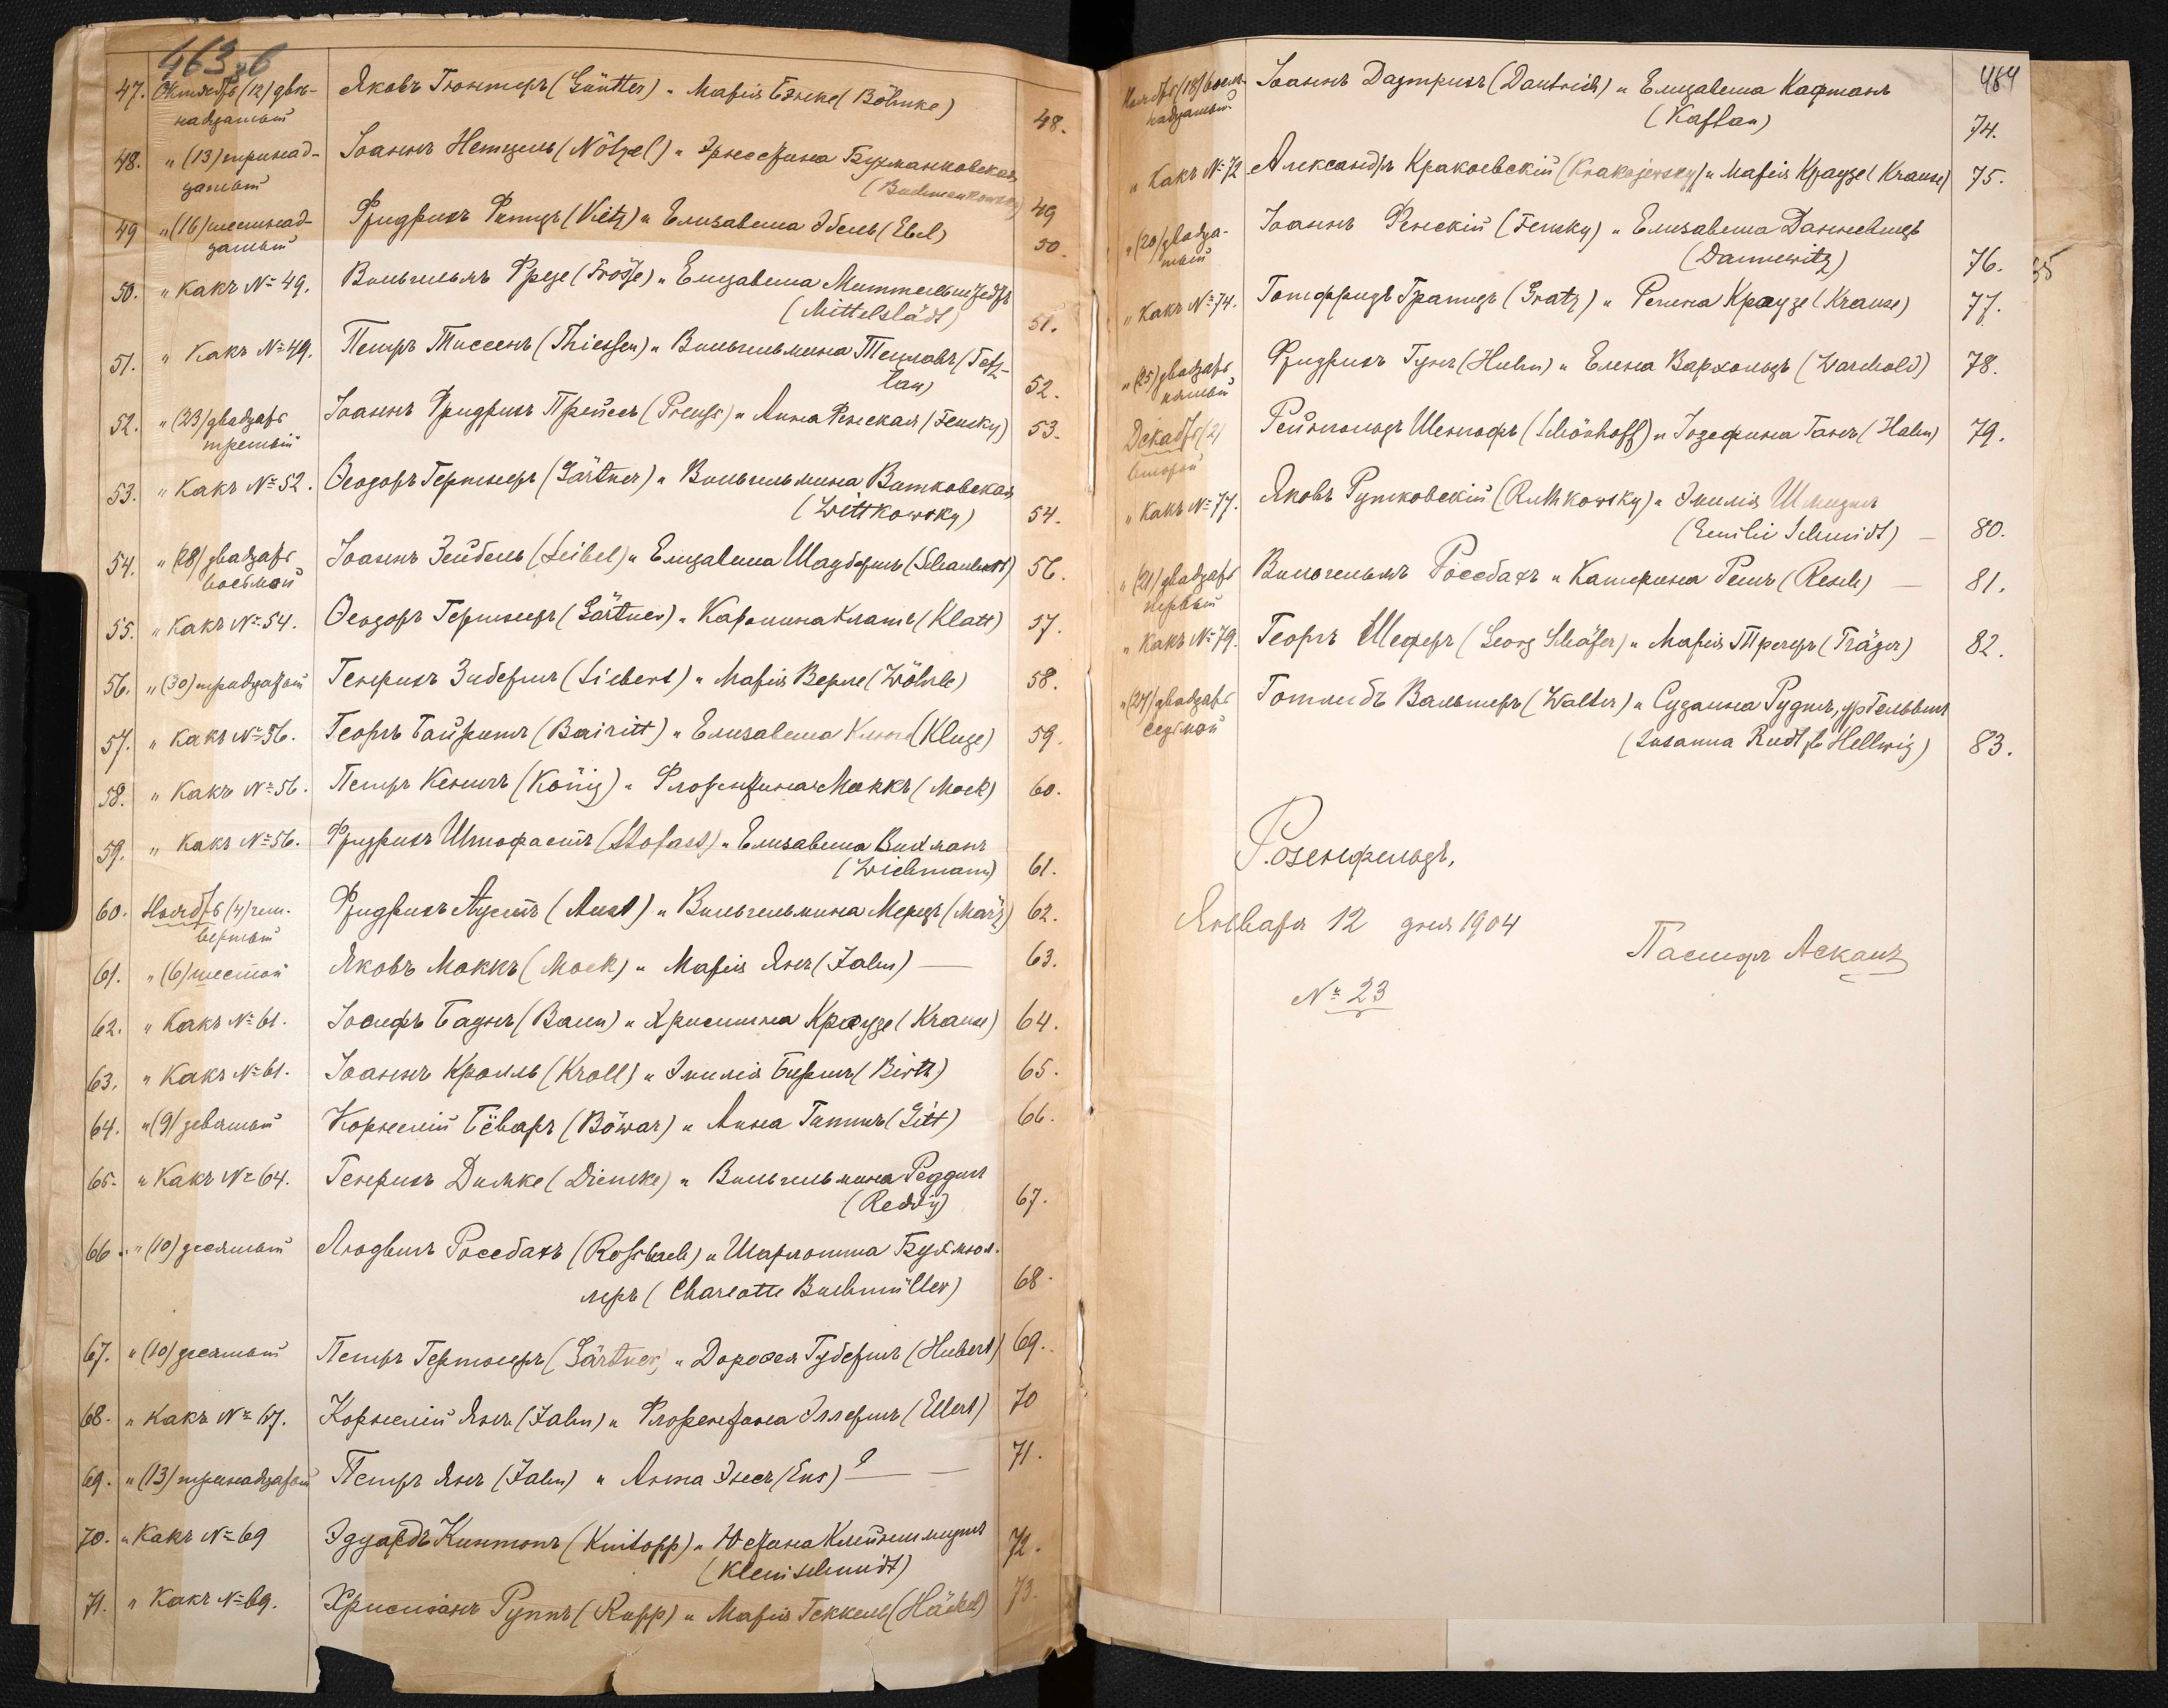 463 об
47. Октября (12) двѣ- Яковъ Гюнтеръ (Güntter) и Марія Бэнке (Böhnke) 48.
надцатый
48. " (13) тринад- Іоаннъ Нетцель (Nötzel) и Эрнестина Бухманковская
цатый (Buchmankowsky) 49
49 " (16) шестнад- Фридрихъ Фитцъ (Vietz) и Елизавета Эбель (Ebel) 50.
цатый
50. " Какъ № 49. Вильгельмъ Фрезе (Fröse) и Елизавета Миттельштедтъ
(Mittelstädt) 51.
51. " Какъ № 49. Петръ Тиссенъ (Thiessen) и Вильгельмина Тецлавъ (Tetz-
lau) 52.
52. " (23) двадцать Іоаннъ Фридрихъ Прейсъ (Preuss) и Анна Фенская (Fensky) 53.
третій
53. " Какъ № 52. Ѳеодоръ Гертнеръ (Gärtner) и Вильгельмина Витковская
(Wittkowsky) 54.
54. " (28) двадцать Іоаннъ Зейбель (Seibel) и Елизавета Шаубертъ (Schaubert) 56.
восьмой
55. " Какъ № 54. Ѳеодоръ Гертнеръ (Gärtner) и Каролина Клатъ (Klatt) 57.
56. " (30) тридцатый Генрихъ Зибертъ (Siebert) и Марія Верле (Wöhrle) 58.
57. " Какъ № 56. Георгъ Байритъ (Bairitt) и Елизавета Клюге (Kluge) 59.
58. " Какъ № 56. Петръ Кенигъ (König) и Флорентина Моккъ (Mock) 60.
59. " Какъ № 56. Фридрихъ Штофастъ (Stofast) и Елизавета Вихманъ
(Wichmann) 61.
60. Ноября (4) чет- Фридрихъ Аустъ (Aust) и Вильгельмина Мерцъ (März) 62.
вертый
61. " (6) шестой Яковъ Моккъ (Mock) и Марія Янъ (Jahn) — 63.
62. " Какъ № 61. Іосифъ Баунъ (Baun) и Христина Краузе (Krause) 64.
63. " Какъ № 61. Іоаннъ Кролль (Kroll) и Эмилія Биртъ (Birth) 65.
64. " (9) девятый Корнелій Бёваръ (Böwar) и Анна Гиттъ (Gitt) 66.
65. " Какъ № 64. Генрихъ Димке (Diemke) и Вильгельмина Реддигъ
(Reddig) 67.
66. " (10) десятый Людвигъ Россбахъ (Rossbach) и Шарлотта Бухмюл-
леръ (Charlotte Buchmüller) 68.
67. " (10) десятый Петръ Гертнеръ (Gärtner) и Доротея Губертъ (Hubert) 69.
68. " Какъ № 67. Корнелій Янъ (Jahn) и Флорентина Эллертъ (Ellert) 70
69. " (13) тринадцатый Петръ Янъ (Jahn) и Анна Энсъ (Ens) ? — — 71.
70. " Какъ № 69 Эдуардъ Книтопъ (Knitopp) и Юстина Клейншмидтъ
(Kleinschmidt) 72.
71. " Какъ № 69. Христіанъ Руппъ (Rupp) и Марія Геккель (Häckel) 73.
464
Ноября (18) восем- Іоаннъ Даутрихъ (Dautrich) и Елизавета Кафтанъ
надцатый (Kaftan) 74.
" Какъ № 72 Александръ Кракоевскій (Krakojewsky) и Марія Краузе (Krause) 75.
" (20) двадца- Іоаннъ Фенскій (Fensky) и Елизавета Данневицъ
тый (Dannewitz) 76.
35
" Какъ № 74. Готфридъ Гратцъ (Gratz) и Регина Краузе (Krause) 77.
" (25) двадцать Фридрихъ Гунъ (Huhn) и Елена Вархольдъ (Warchold) 78.
пятый
Декабря (2) Рейнгольдъ Шенгофъ (Schönhoff) и Іозефина Ганъ (Hahn) 79.
второй
" Какъ № 77. Яковъ Рутковскій (Ruthkowsky) и Эмилія Шмидтъ
(Emilie Schmidt) — 80.
" (21) двадцать Вильгельмъ Россбахъ и Катерина Решъ (Resch) — 81.
первый
" Какъ № 79. Георгъ Шеферъ (Georg Schäfer) и Марія Трегеръ (Träger) 82.
" (27) двадцать Готлибъ Вальтеръ (Walter) и Сузанна Рудтъ, ур. Гельвигъ
седьмой (Susanna Rudt geb Hellwig) 83.
Розенфельдъ,
Января 12 дня 1904
Пасторъ Асканъ
№ 23